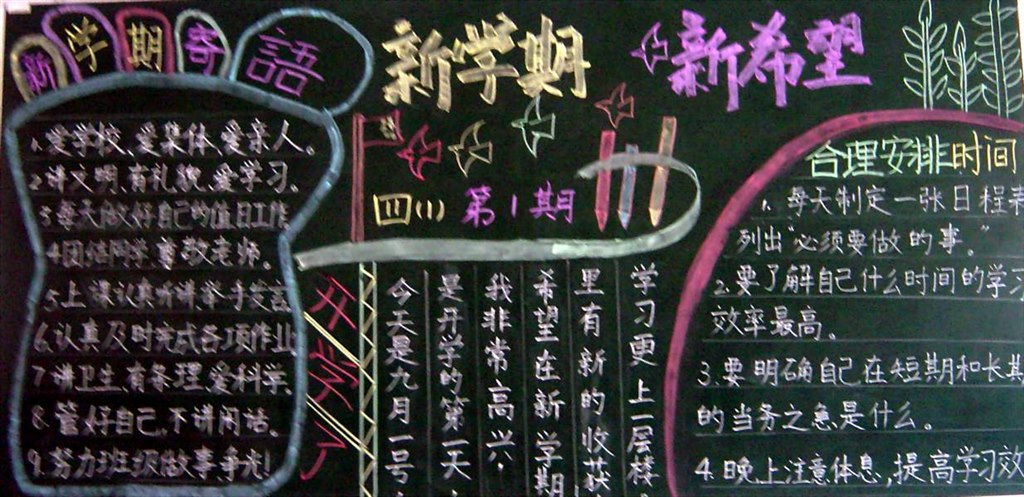 新学期寄語
新学期 新希望
1.爱学校、爱集体、爱亲人。
2.讲文明、有礼貌、爱学习。
3.每天做好自己的值日工作
4.团结同学、尊敬老师。
5.上课认真听讲、举手发言
6.认真及时完成各项作业
7.讲卫生、有条理、爱科学。
8.管好自己,不讲闲话。
9.努力班级做事争光!
四(1) 第1期
开学了
今天是九月一号
是开学的第一天
我非常高兴。
希望在新学期
里有新的收获
学习更上一层楼
合理安排时间
1.每天制定一张日程表
列出“必须要做的事。”
2.要了解自己什么时间的学习
效率最高。
3.要明确自己在短期和长期
的当务之急是什么。
4.晚上注意休息,提高学习效